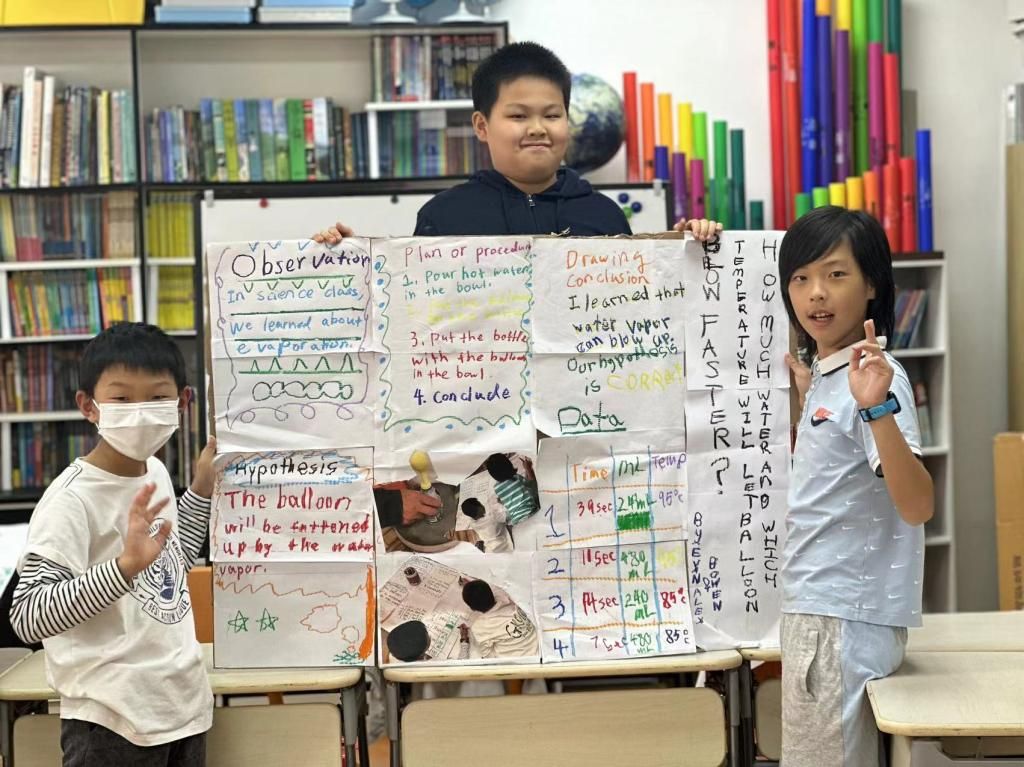 Observation
In science class,
we learned about
evaporation.
Hypothesis
The balloon
will be fattened
up by the water
vapor.
Plan or procedure
1. Pour hot water
in the bowl.
3. Put the bottle
with the balloon
in the bowl.
4. conclude
Drawing
Conclusion
I learned that
water vapor
can blow up.
Our hypothesis
is CORRECT
Data
Time mL Temp
1 39sec 24mL 95°C
2 11sec 480 mL
3 14sec 240 mL 85°c
4 7sec 480 mL 85°c
HOW MUCH WATER AND WHICH
TEMPERATURE WILL LET BALLOON
BLOW FASTER?